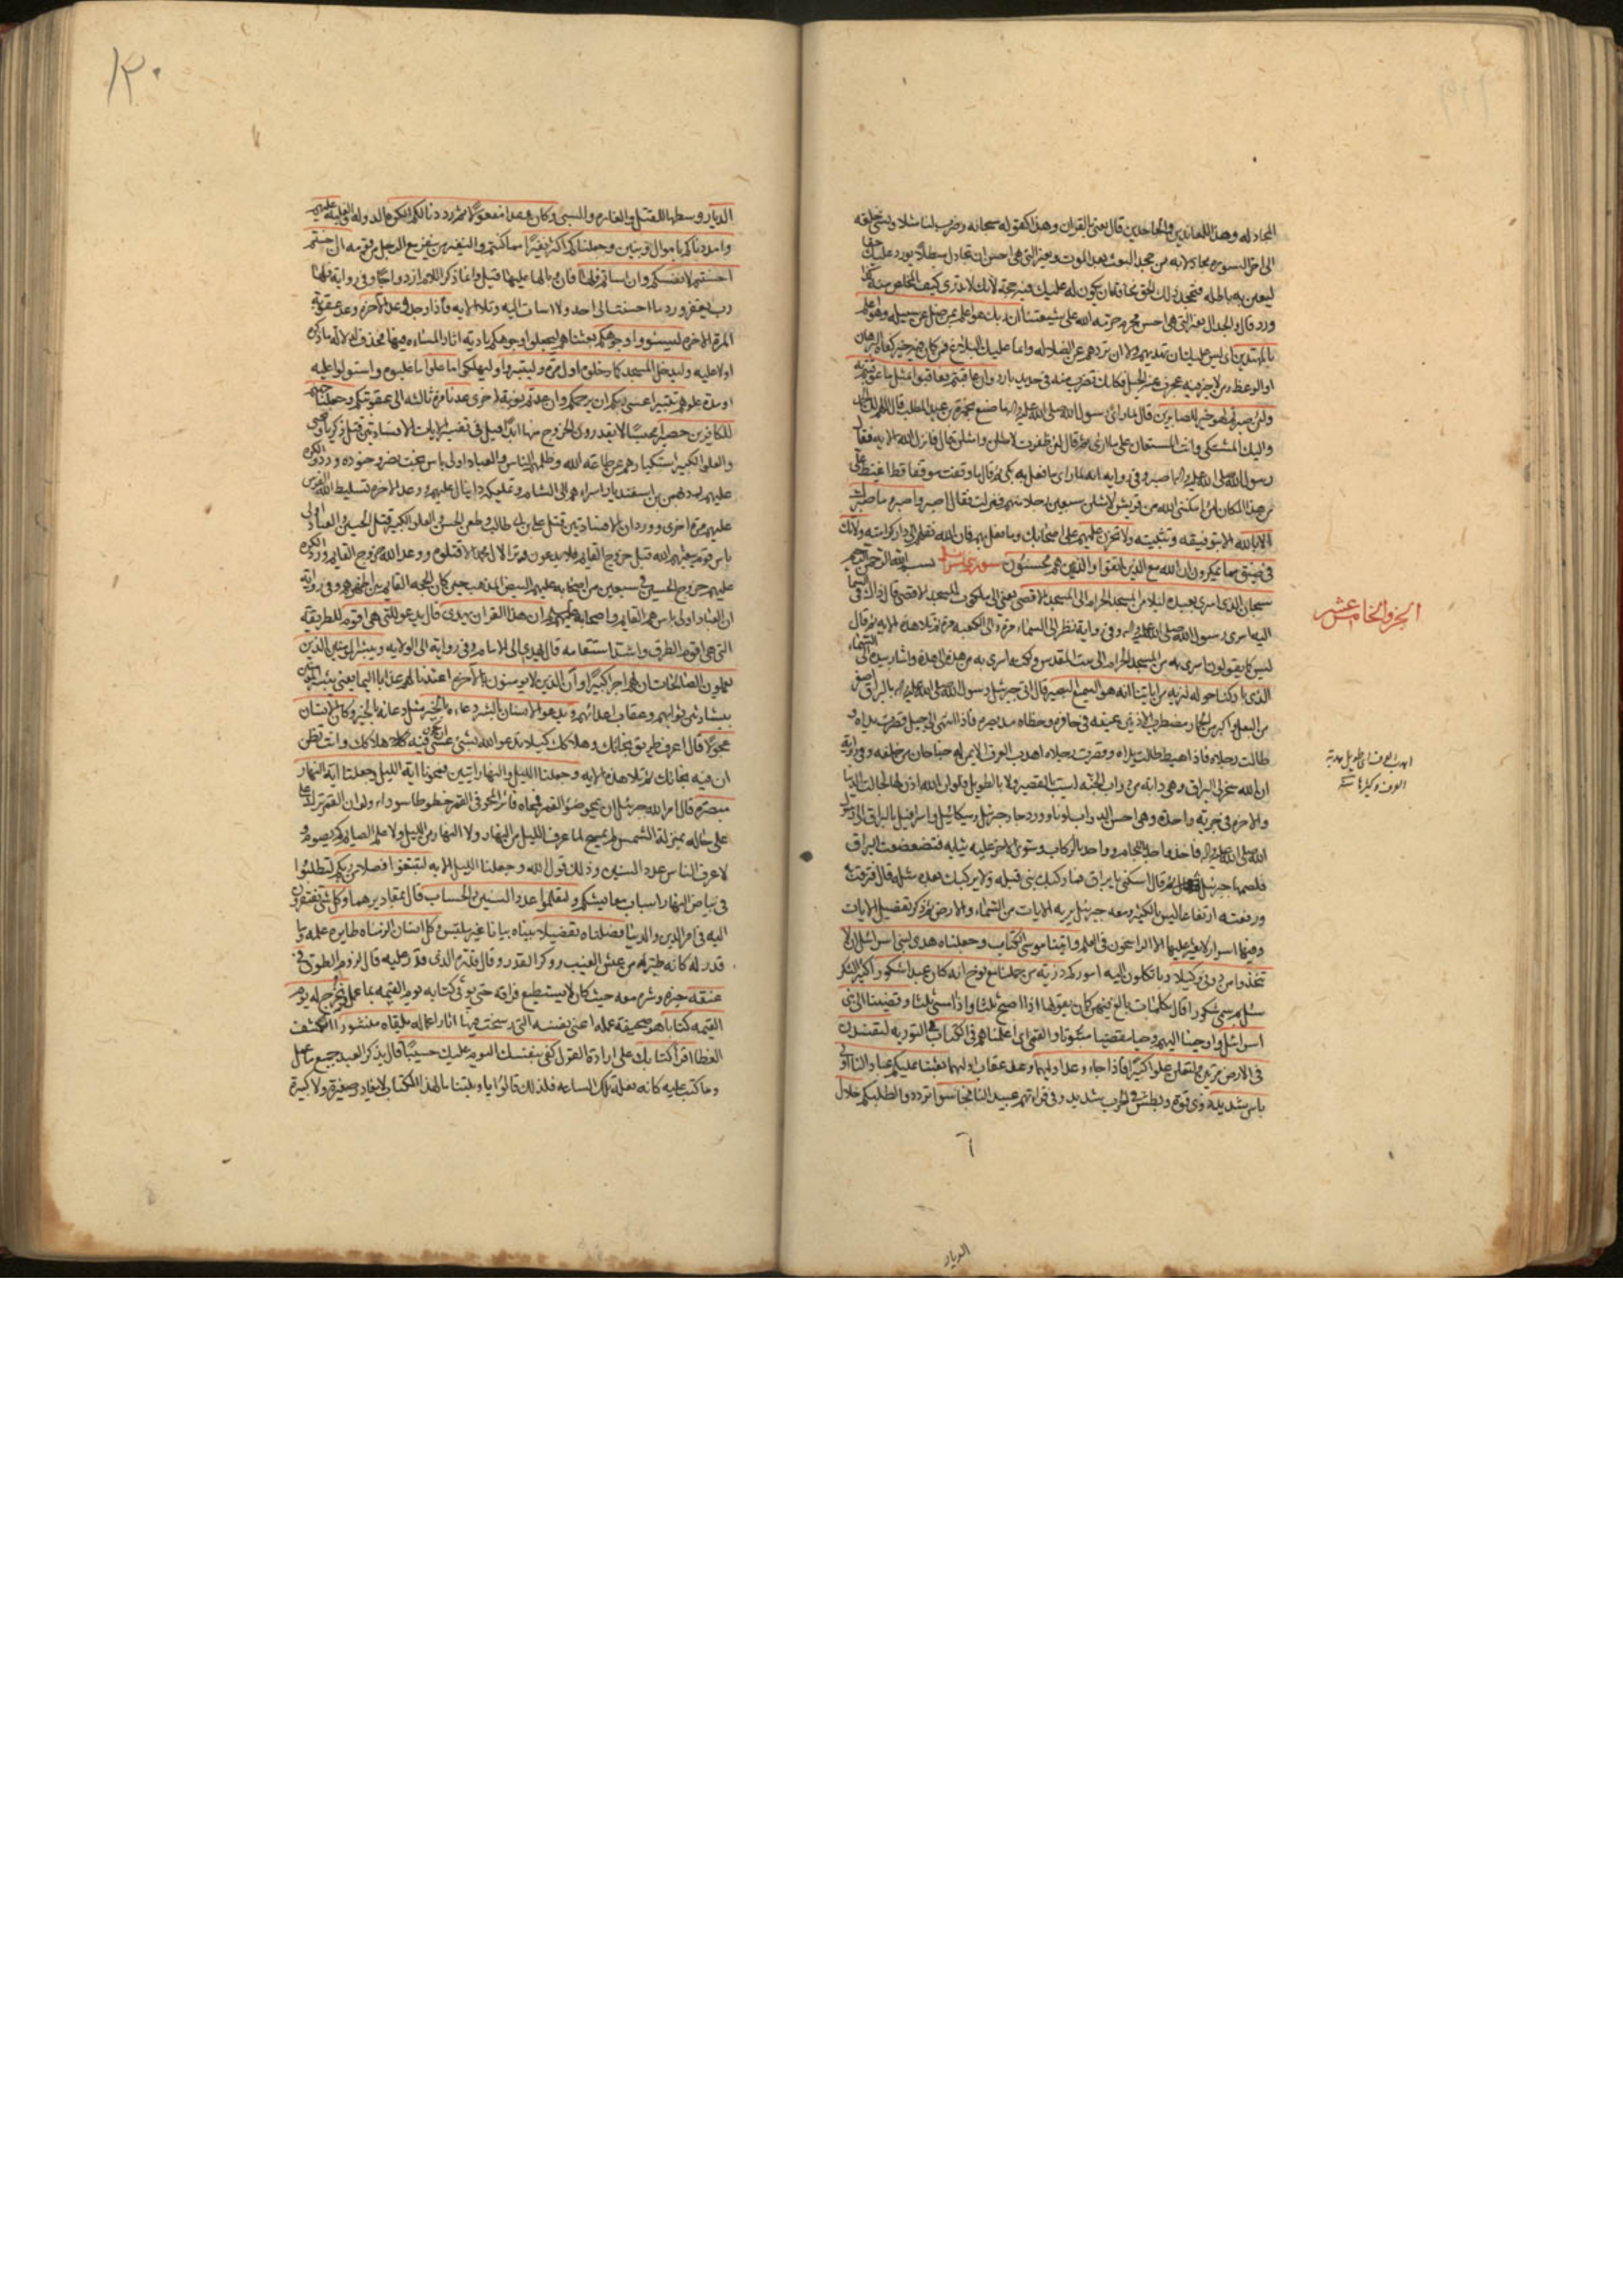 المجادله وهذا للمعاندين والجاحدين قال يعني بالقران وهذا كقوله سبحانه وضرب لنا مثلا ونسي خلقه
الى اخر السوره من جحد البعث بعد الموت وبغير التي هي احسن ان تجادل مبطلا يورد عليك
ليعين به باطله فتجحد ذلك الحق مخافة ان يكون له عليك فيه حجة لانك لا تدري كيف المخلص منه
ورد قال والجدال بغير التي هي احسن محرم حرمه الله على شيعتنا ان ربك هو اعلم بمن ضل عن سبيله وهو اعلم
بالمهتدين اي ليس عليك ان تهديهم ولا ان تردهم عن الضلاله وانما عليك البلاغ فمن كان فيه خير كفاه البرهان
او الوعظ ومن لا خير فيه عجزت عنه الحيل فكانك تضرب منه في حديد بارد وان عاقبتم فعاقبوا بمثل ما عوقبتم به
ولئن صبرتم لهو خير للصابرين قال لما راى رسول الله صلى الله عليه واله ما صنع بحمزة بن عبد المطلب قال اللهم لك الحمد
واليك المشتكى وانت المستعان على ما ارى ثم قال لئن ظفرت لامثلن وامثلن قال فانزل الله الايه فقال
رسول الله صلى الله عليه واله اصبر وفي روايه انه لما راى ما فعل به بكى ثم قال ما وقفت موقفا قط اغيظ علي
من هذا المكان لئن امكنني الله من قريش لامثلن سبعين رجلا منهم فنزلت فقال اصبر واصبر وما صبرك
الا بالله الا بتوفيقه وتثبيته ولا تحزن عليهم على اصحابك وما فعل بهم فان الله نقلهم الى دار كرامته ولا تك
في ضيق مما يمكرون ان الله مع الذين اتقوا والذين هم محسنون سورة بني اسرائيل بسم الله الرحمن الرحيم
سبحان الذي اسرى بعبده ليلا من المسجد الحرام الى المسجد الاقصى يعني الى ملكوت المسجد الاقصى قال ذاك في السماء
اليه اسرى رسول الله صلى الله عليه واله وفي رواية نظر الى السماء مرة والى الكعبه مرة ثم تلا هذه الايه ثم قال
ليس كما يقولون اسرى به من المسجد الحرام الى بيت المقدس ولكنه اسرى به من هذه الى هذه واشار بيده الى السماء
الذي باركنا حوله لنريه من اياتنا انه هو السميع البصير قال اتى جبرئيل رسول الله صلى الله عليه واله بالبراق اصغر
من البغل واكبر من الحمار مضطرب الاذنين عينيه في حافره وخطاه مد بصره فاذا انتهى الى جبل قصرت يداه و
طالت رجلاه فاذا هبط طالت يداه وقصرت رجلاه اهدب العرف الايمن له جناحان من خلفه وفي رواية
ان الله سخر لي البراق وهي دابه من دواب الجنه ليست بالقصير ولا بالطويل فلو ان الله اذن لها لجالت الدنيا
والاخره في جرية واحده وهي احسن الدواب لونا وورد جاء جبرئيل وميكائيل واسرافيل بالبراق الى رسول
الله صلى الله عليه واله فاخذ واحد باللجام وواحد بالركاب وسوى الاخر عليه ثيابه فتضعضعت البراق
فلطمها جبرئيل ثم قال اسكني يا براق فما ركبك نبي قبله ولا يركبك بعده مثله قال فترقت به
ورفعته ارتفاعا ليس بالكثير ومعه جبرئيل يريه الايات من السماء والارض ثم ذكر تفصيل الايات
وفيها اسرار لا يعثر عليها الا الراسخون في العلم واتينا موسى الكتاب وجعلناه هدى لبني اسرائيل ان لا
تتخذوا من دوني وكيلا ربا تكلون اليه اموركم ذرية من حملنا مع نوح انه كان عبدا شكورا كثير الشكر
سئل لم سمي شكورا قال بكلمات بالغ فيهن كان يقولها اذا اصبح ثلثا واذا امسى ثلثا وقضينا الى بني
اسرائيل واوحينا اليهم وحيا مقضيا مبتوتا والقمي اي اعلمناهم في الكتاب في التورية لتفسدن
في الارض مرتين ولتعلن علوا كبيرا فاذا جاء وعد اوليهما وعد عقاب اوليهما بعثنا عليكم عبادا لنا اولي
باس شديد ذوي قوة وبطش في الحرب شديد وفي قراءتهم عبيدا لنا فجاسوا ترددوا لطلبكم خلال
الجزو الخامس عشر
الديار
١٢٠
الديار وسطها للقتل والغاره والسبي وكان وعدا مفعولا ثم رددنا لكم الكرة الدوله والغلبه عليهم
وامددناكم باموال وبنين وجعلناكم اكثر نفيرا مما كنتم والنفير من ينفر مع الرجل من قومه ان احسنتم
احسنتم لانفسكم وان اساتم فلها فان وبالها عليها قيل وانما ذكر اللام ازدواجا وفي رواية فلها
رب يغفر وورد ما احسنت الى احد ولا اسات اليه وتلا الايه فاذا جاء وعد الاخرة وعد عقوبة
المرة الاخره ليسوؤا وجوهكم بعثناهم ليجعلوا وجوهكم بادية اثار المساءه فيها فحذف لدلالة ما ذكره
اولا عليه وليدخلوا المسجد كما دخلوه اول مرة وليتبروا وليهلكوا ما علوا ما غلبوه واستولوا عليه
او مدة علوهم تتبيرا عسى ربكم ان يرحمكم وان عدتم نوبة اخرى عدنا مرة ثالثه الى عقوبتكم وجعلنا جهنم
للكافرين حصيرا محبسا لا يقدرون الخروج منها ابدا قيل في تفسير الايات الافسادتين قتل زكريا ويحيى
والعلو الكبير استكبارهم عن طاعة الله وظلمهم الناس والعباد اولي باس بخت نصر وجنوده ورد الكرة
عليهم رد بهمن بن اسفنديار اسراءهم الى الشام وتمليكه دانيال عليهم ووعد الاخره تسليط الله الفرس
عليهم مرة اخرى وورد ان الافسادتين قتل علي بن ابي طالب وطعن الحسن والعلو الكبير قتل الحسين والعباد اولي
باس قوم يبعثهم الله قبل خروج القايم فلا يدعون وترا لال محمد الا قتلوه ووعد الله خروج القايم ورد الكرة
عليهم خروج الحسين في سبعين من اصحابه عليهم البيض المذهب حين كان الحجه القايم بين اظهرهم وفي رواية
ان العباد اولي باس هم القايم واصحابه عليهم السلام ان هذا القران يهدى قال يدعو للتي هي اقوم للطريقة
التي هي اقوم الطرق واشد استقامه قال يهدي الى الامام وفي رواية الى الولايه ويبشر المومنين الذين
يعملون الصالحات ان لهم اجرا كبيرا وان الذين لا يومنون بالاخرة اعتدنا لهم عذابا اليما يعني يبشر المومنين
ببشارتين ثوابهم وعقاب اعدائهم ويدعو الانسان بالشر دعاءه بالخير مثل دعائه بالخير وكان الانسان
عجولا قال اعرف طريق نجاتك وهلاكك كيلا تدعو الله بشئ عسى فيه هلاكك وانت تظن
ان فيه نجاتك ثم تلا هذه الايه وجعلنا الليل والنهار ايتين فمحونا اية الليل وجعلنا اية النهار
مبصرة قال امر الله جبرئيل ان يمحو ضوء القمر فمحاه فاثر المحو في القمر خطوطا سوداء ولو ان القمر ترك
على حاله بمنزلة الشمس لم يمح لما عرف الليل من النهار ولا النهار من الليل ولا علم الصايم كم يصوم و
لا عرف الناس عدد السنين وذلك قول الله وجعلنا الليل الايه لتبتغوا فضلا من ربكم لتطلبوا
في بياض النهار اسباب معايشكم ولتعلموا عدد السنين والحساب قال بمقاديرهما وكل شئ تفتقرون
اليه في امر الدين والدنيا فصلناه تفصيلا بيناه بيانا غير ملتبس وكل انسان الزمناه طايره عمله وما
قدر له كانه طير له من عش الغيب ووكر القدر وقال قدره الذي قدر عليه قال لزوم الطوق في
عنقه خيره وشره معه حيث كان لا يستطيع فراقه حتى يوتى كتابه يوم القيمه بما عمل ونخرج له يوم
القيمه كتابا هو صحيفة عمله اعني نفسه التي رسخت فيها اثار اعماله يلقاه منشورا لكشف
الغطا اقرا كتابك على ارادة القول كفى بنفسك اليوم عليك حسيبا قال يذكر العبد جميع ما عمل
وما كتب عليه كانه فعله تلك الساعه فلذلك قالوا يا ويلتنا ما لهذا الكتاب لا يغادر صغيرة ولا كبيرة